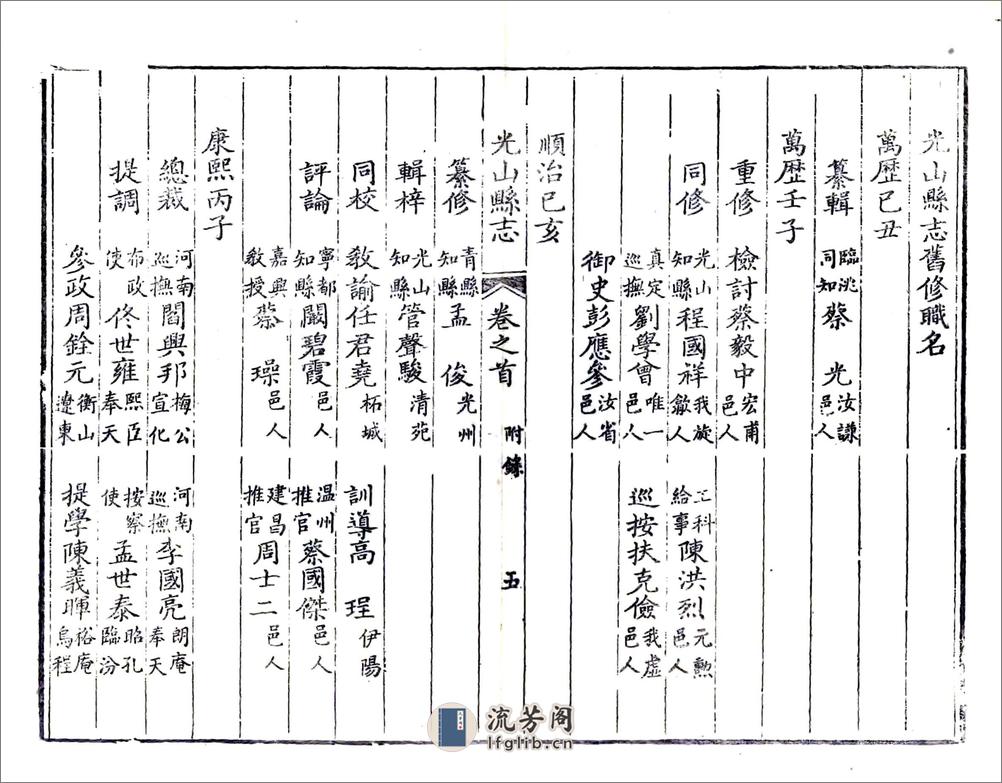 光山縣志舊修職名
萬歷己丑
纂輯 臨洮同知蔡 光汝謙邑人
萬歷壬子
重修 檢討蔡毅中宏甫邑人
同修 光山知縣程國祥我旋歙人 工科給事陳洪烈元勲邑人
真定巡撫劉學曾唯一邑人 巡按扶克儉我虚邑人
御史彭應參汝省邑人
順治己亥
光山縣志 卷之首 附錄 五
纂修 青縣知縣孟 俊光州
輯梓 光山知縣管聲駿清苑
同校 敎諭任君堯柘城 訓導高 珵伊陽
評論 寧都知縣闞碧霞邑人 温州推官蔡國傑邑人
嘉興敎授蔡 璪邑人 建昌推官周士二邑人
康熙丙子
總裁 河南巡撫閻興邦梅公宣化 河南巡撫李國亮朗庵奉天
提調 布政使佟世雍熙臣奉天 按察使孟世泰昭孔臨汾
參政周銓元衡山遼東 提學陳義暉裕庵烏程
流芳阁
lfglib.cn